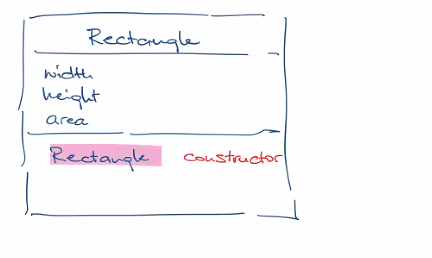 Rectangle
width
height
area
Rectangle constructor